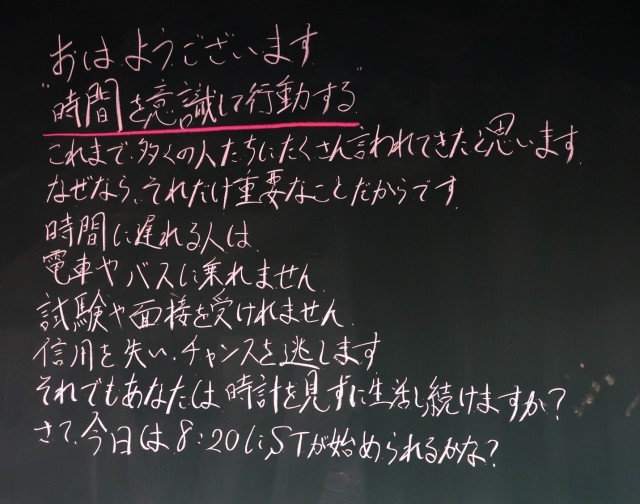 おはようございます
"時間を意識して行動する"
これまで、多くの人たちにたくさん言われてきたと思います。
なぜなら、それだけ重要なことだからです。
時間に遅れる人は、
電車やバスに乗れません。
試験や面接を受けれません。
信用を失い、チャンスを逃します
それでもあなたは、時計を見ずに生活し続けますか？
さて、今日は8:20に、STが始められるかな？